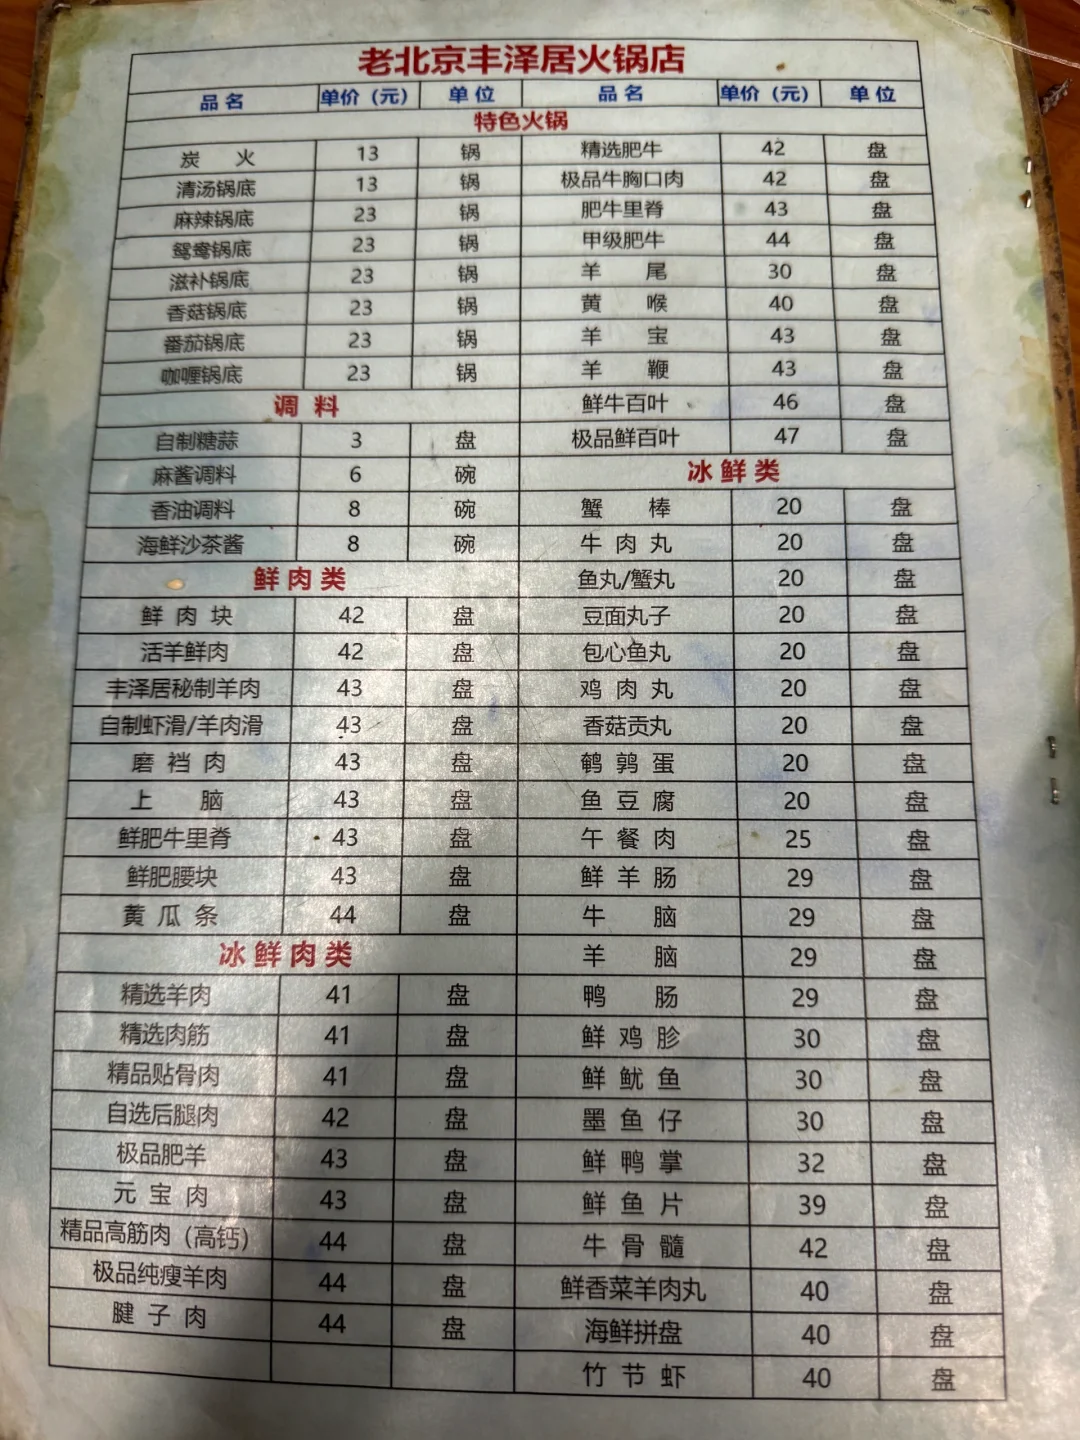 老北京丰泽居火锅店
品名 单价（元） 单位 品名 单价（元） 单位
特色火锅
炭 火 13 锅 精选肥牛 42 盘
清汤锅底 13 锅 极品牛胸口肉 42 盘
麻辣锅底 23 锅 肥牛里脊 43 盘
鸳鸯锅底 23 锅 甲级肥牛 44 盘
滋补锅底 23 锅 羊 尾 30 盘
香菇锅底 23 锅 黄 喉 40 盘
番茄锅底 23 锅 羊 宝 43 盘
咖喱锅底 23 锅 羊 鞭 43 盘
调 料 鲜牛百叶 46 盘
自制糖蒜 3 盘 极品鲜百叶 47 盘
麻酱调料 6 碗 冰鲜类
香油调料 8 碗 蟹 棒 20 盘
海鲜沙茶酱 8 碗 牛肉丸 20 盘
鲜肉类 鱼丸/蟹丸 20 盘
鲜肉块 42 盘 豆面丸子 20 盘
活羊鲜肉 42 盘 包心鱼丸 20 盘
丰泽居秘制羊肉 43 盘 鸡肉丸 20 盘
自制虾滑/羊肉滑 43 盘 香菇贡丸 20 盘
磨裆肉 43 盘 鹌鹑蛋 20 盘
上 脑 43 盘 鱼豆腐 20 盘
鲜肥牛里脊 43 盘 午餐肉 25 盘
鲜肥腰块 43 盘 鲜羊肠 29 盘
黄瓜条 44 盘 牛 脑 29 盘
冰鲜肉类 羊 脑 29 盘
精选羊肉 41 盘 鸭 肠 29 盘
精选肉筋 41 盘 鲜鸡胗 30 盘
精品贴骨肉 41 盘 鲜鱿鱼 30 盘
自选后腿肉 42 盘 墨鱼仔 30 盘
极品肥羊 43 盘 鲜鸭掌 32 盘
元宝肉 43 盘 鲜鱼片 39 盘
精品高筋肉（高钙） 44 盘 牛骨髓 42 盘
极品纯瘦羊肉 44 盘 鲜香菜羊肉丸 40 盘
腱子肉 44 盘 海鲜拼盘 40 盘
竹节虾 40 盘